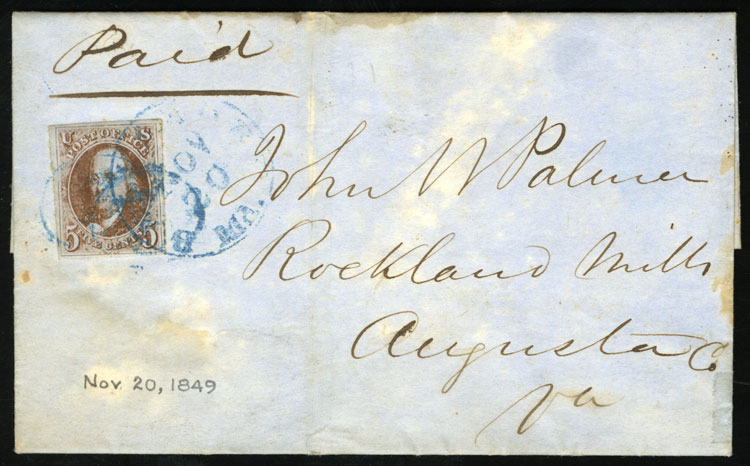 Paid
U S
POST OFFICE
5 FIVE CENTS 5
NOV
20
Md.
John W Palmer
Rockland Mills
Augusta Co
Va
Nov 20, 1849